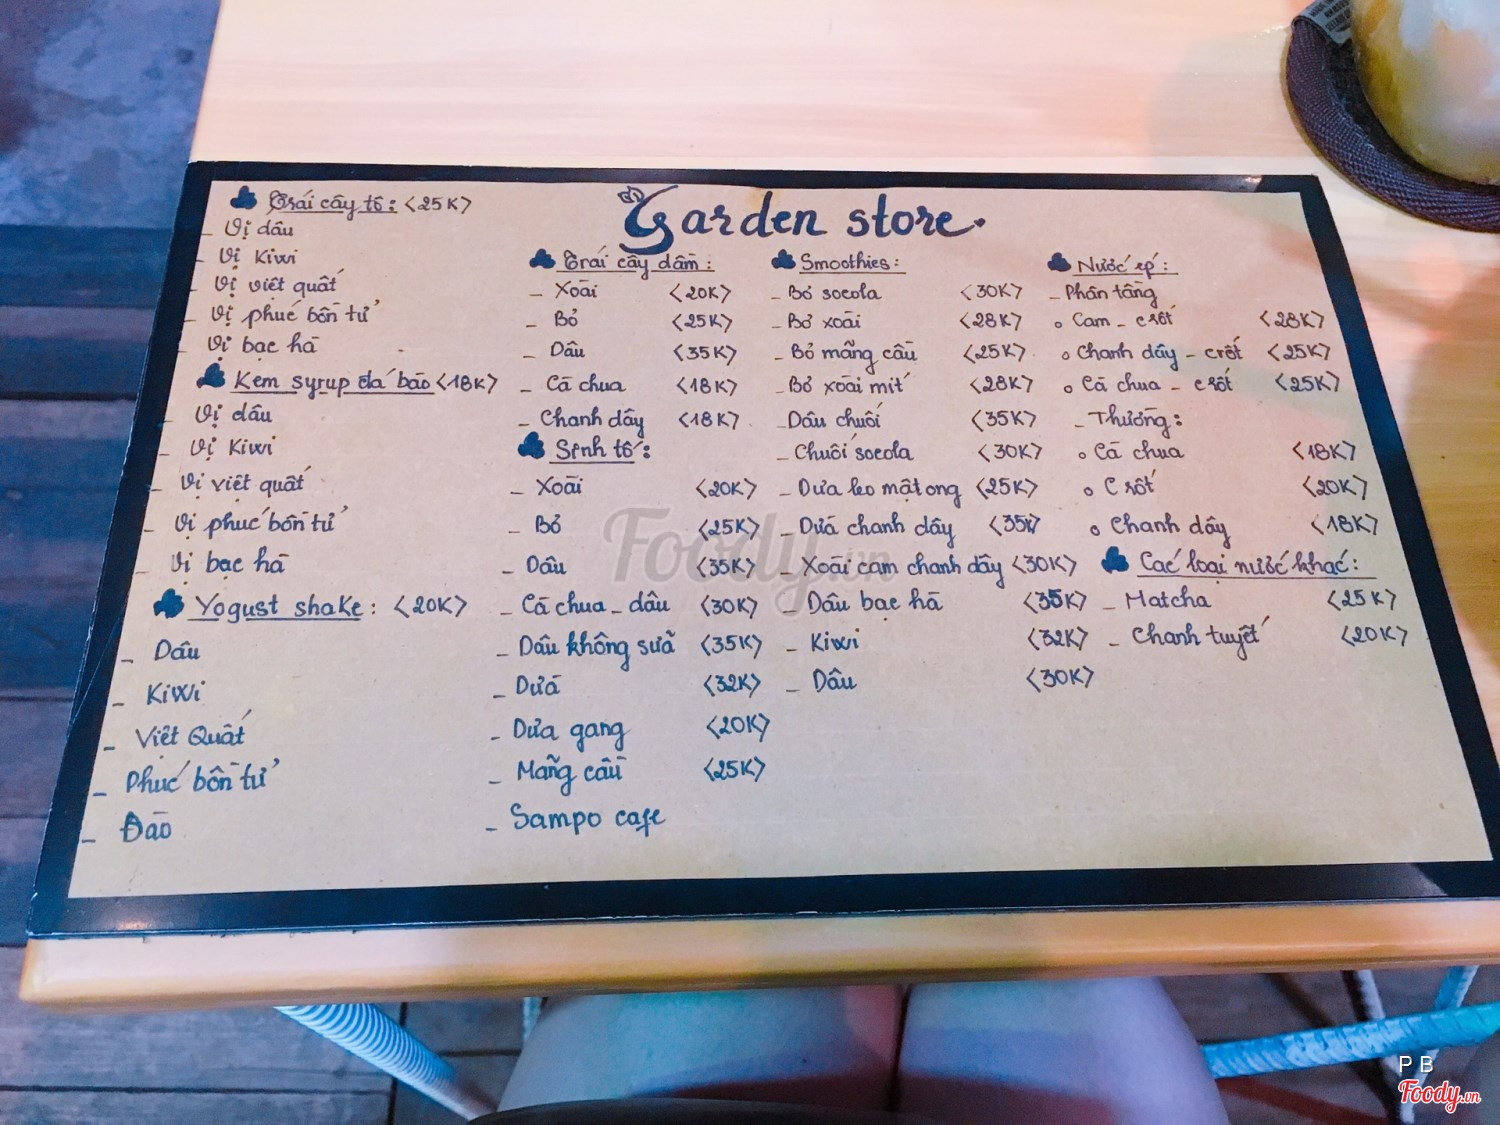 Garden store.
Trái cây tô: <25K>
_ Vị dâu
_ Vị Kiwi
_ Vị việt quất
_ Vị phúc bồn tử
_ Vị bạc hà
Kem syrup đá bào <18K>
_ Vị dâu
_ Vị Kiwi
_ Vị việt quất
_ Vị phúc bồn tử
_ Vị bạc hà
Yogust shake: <20K>
_ Dâu
_ Kiwi
_ Việt Quất
_ Phúc bồn tử
_ Đào
Trái cây dầm:
_ Xoài <20K>
_ Bơ <25K>
_ Dâu <35K>
_ Cà chua <18K>
_ Chanh dây <18K>
Sinh tố:
_ Xoài <20K>
_ Bơ <25K>
_ Dâu <35K>
_ Cà chua _ dâu <30K>
_ Dâu không sữa <35K>
_ Dừa <32K>
_ Dưa gang <20K>
_ Mãng cầu <25K>
_ Sampo cafe
Smoothies:
_ Bơ socola <30K>
_ Bơ xoài <28K>
_ Bơ mãng cầu <25K>
_ Bơ xoài mít <28K>
_ Dâu chuối <35K>
_ Chuối socola <30K>
_ Dưa leo mật ong <25K>
_ Dứa chanh dây <35K>
_ Xoài cam chanh dây <30K>
_ Dâu bạc hà <35K>
_ Kiwi <32K>
_ Dâu <30K>
Nước ép:
_ Phân tầng
o Cam _ crốt <28K>
o Chanh dây _ crốt <25K>
o Cà chua _ crốt <25K>
_ Thường:
o Cà chua <18K>
o Crốt <20K>
o Chanh dây <18K>
Các loại nước khác:
_ Matcha <25K>
_ Chanh tuyết <20K>
Foody.vn
PB
Foody.vn